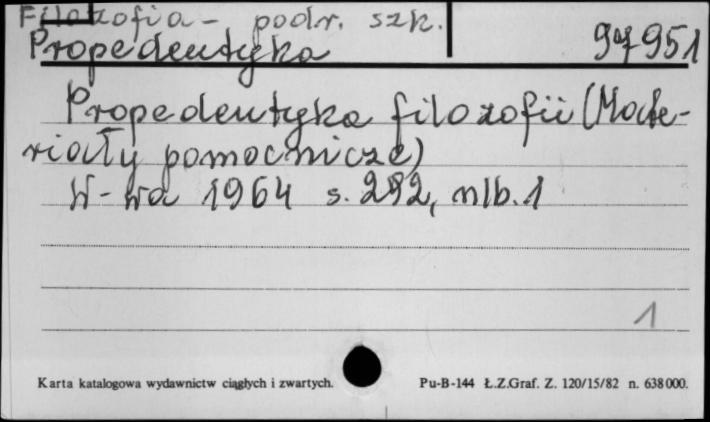 Filozofia - podr. szk.
Propedeutyka 97951
Propedeutyka filozofii (Mate-
riały pomocnicze)
W-wa 1964 s. 292, nlb. 1
1
Karta katalogowa wydawnictw ciągłych i zwartych. Pu-B-144 Ł.Z.Graf. Z. 120/15/82 n. 638000.